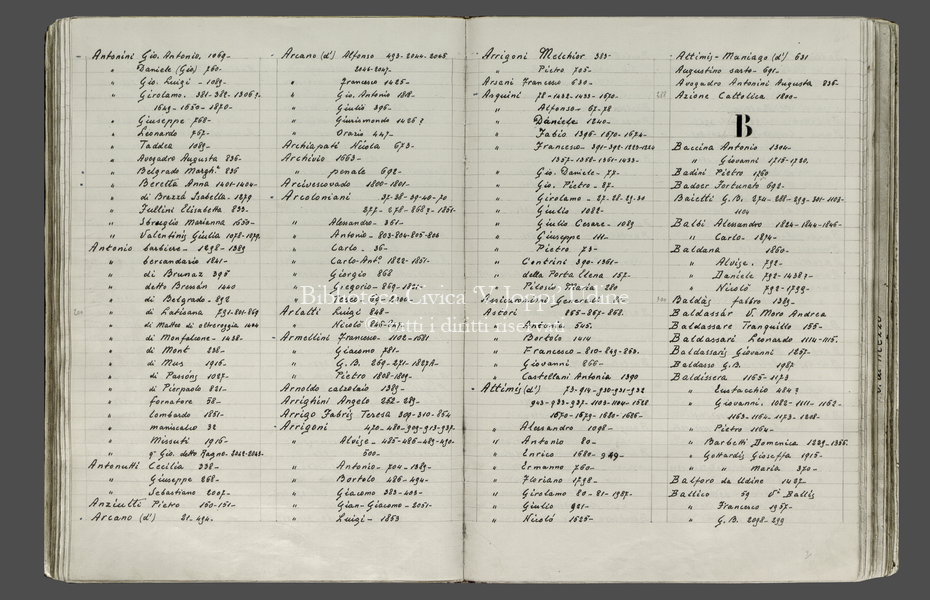 Antonini Gio. Antonio. 1069-
" Daniele (Gio) 760-
" Gio. Luigi - 1089-
" Girolamo. 381-382-1306?-
1649-1650-1870-
" Giuseppe 768-
" Leonardo 767-
" Taddea 1089-
" Avogadro Augusta 836-
" Belgrado Margh.ª 836
" Beretta Anna 1401-1404-
" di Brazzà Isabella - 1279
" Fullini Elisabetta 833-
" Sbroglio Marianna 1650-
" Valentinis Giulia 1078-1079-
Antonio barbiere - 1298-1389
" bercandario 1841-
" di Brunaz 396
" detto Bressán 1440
" di Belgrado - 892
" di Latisana 791-801-869
" di Matteo di oltreroggia 1404
" di Monfalcone - 1438-
" di Mont 238-
" di Mus 1916-
" di Passóns 1027-
" di Pierpaolo 821-
" fornatore 58-
" lombardo 1851-
" maniscalco 32
" Missuti 1916-
" qᵐ Gio. detto Ragno. 2042-2043-
Antonutti Cecilia 238-
" Giuseppe 268-
" Sebastiano 2007-
Anziutti Pietro 150-151-
Arcano (d') 21-494-
Arcano (d') Alfonso 493-2044-2045
2046-2047-
" Francesco 1425-
" Gio. Antonio 1818-
" Giulio 396-
" Giurismondo 1426?
" Orazio 447-
Archiapati Nicola 673-
Archivio 1663-
" penale 692-
Arcivescovado 1800-1801-
Arcoloniani 37-38-39-40-70
377-678-868?-1861-
" Alessandro - 361-
" Antonio - 803-804-805-806
" Carlo - 36-
" Carlo Ant.º 1822-1851-
" Giorgio 868
" Gregorio - 869-
" Teresa
Arlatti Luigi 848-
" Nicolò
Armellini Francesco - 1102-1681
" Giacomo 781-
" G.B. 269-271-1827?-
" Pietro 1808-1809-
Arnoldo calzolaio 1389-
Arrighini Angelo 262-289-
Arrigo Fabris Teresa 309-310-854
Arrigoni 470-480-909-913-937-
" Alvise - 485-486-489-490-
500-
" Antonio - 704-1389-
" Bortolo 486-494-
" Giacomo 383-403-
" Gian-Giacomo - 2051-
" Luigi - 1853
Arrigoni Melchior 383-
" Pietro 705-
Arsani Francesco 630-
Asquini 78-1432-1433-1670-
" Alfonso - 67-78
" Daniele 1240-
" Fabio 1396-1670-1674-
" Francesco - 391-392-1223-1240
1357-1358-1361-1433-
" Gio. Daniele - 77-
" Gio. Pietro - 87-
" Girolamo - 27-28-29-30
" Giulio 1082-
" Giulio Cesare - 1089
" Giuseppe 111-
" Pietro 73-
" Contrini 390-1361-
" della Porta Elena 157-
" Pilosio Maria 280
Assicurazioni Generali
Astori 865-867-868-
" Antonio 505-
" Bortolo 1414
" Francesco - 810-849-863-
" Giovanni 866-
" Castellani Antonia 1390
Attimis (d') 73-914-930-931-932
943-933-937-1103-1104-1528
1670-1679-1680-1686-
" Alessandro 1098-
" Antonio 80-
" Enrico 1680-949-
" Ermanno 760-
" Floriano 1798-
" Girolamo 80-81-1987-
" Giulio 921-
" Nicolò 1525-
Attimis-Maniago (d') 631
Augustino sarto - 691-
Avogadro Antonini Augusta 836-
Azione Cattolica 1800-
B
Baccina Antonio 1304-
" Giovanni 1715-1720-
Badini Pietro 1760
Badoer Fortunato 692-
Baietti G.B. 274-288-299-301-1103-
1104
Balbi Alessandro 1824-1844-1845-
" Carlo - 1874-
Baldana 1860-
" Alvise. 792-
" Daniele 792-1438?-
" Nicolò 792-1799-
Baldàs fabbro 1389-
Baldassàr V. Moro Andrea
Baldassare Tranquillo 155-
Baldassari Leonardo 1114-115-
Baldassaris Giovanni 1257-
Baldasso G.B. 1987
Baldissera 1165-1173
" Eustacchio 484?
" Giovanni. 1082-1111-1162-
1163-1164-1173-1218-
" Pietro 1164-
" Barbetti Domenica 1229-1355-
" Gottardis Gioseffa 1915-
" " Maria 370-
Balforo da Udine 1427-
Ballico 59 Vⁱ Ballis
" Francesco 1957-
" G.B. 2098-299
Biblioteca Civica 'V. Joppi' Udine
© tutti i diritti riservati